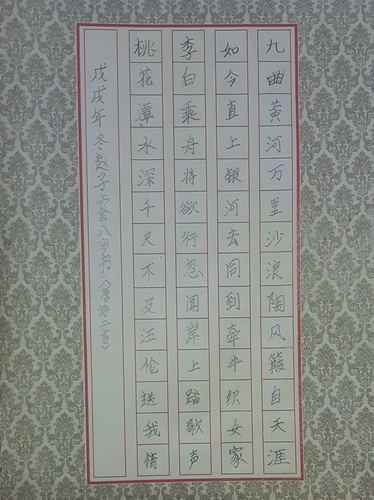 九曲黄河万里沙浪陶风簸自天涯
如今直上银河去同到牵牛织女家
李白乘舟将欲行忽闻岸上踏歌声
桃花潭水深千尺不及汪伦送我情
戊戌年冬赵子八岁书（唐诗二首）